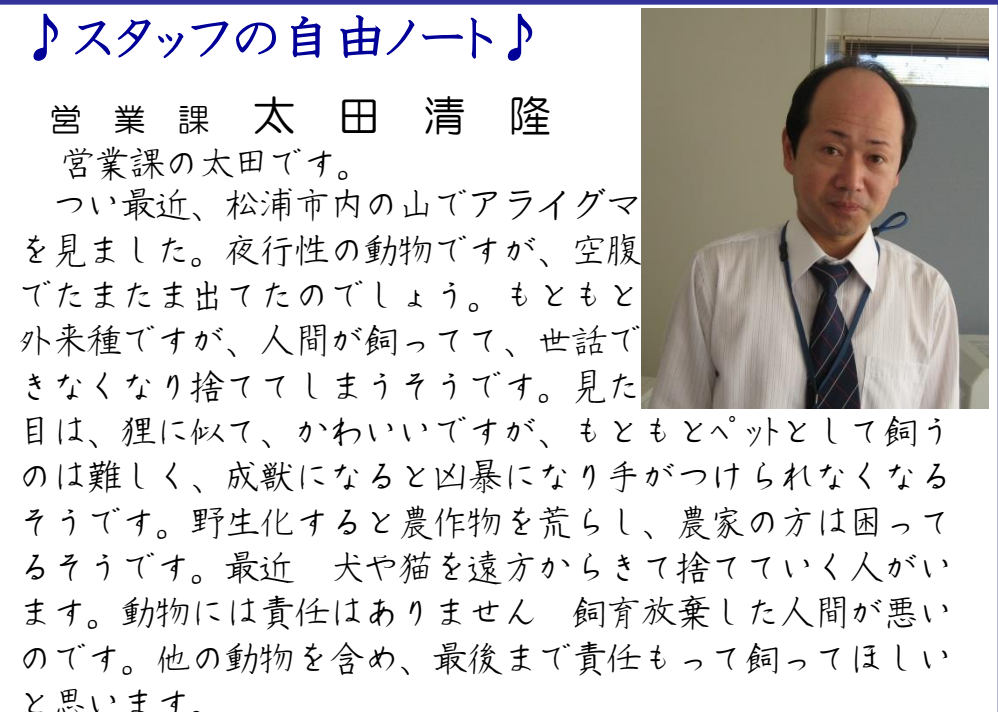 ♪スタッフの自由ノート♪
営業課 太田清隆
営業課の太田です。
つい最近、松浦市内の山でアライグマ
を見ました。夜行性の動物ですが、空腹
でたまたま出てたのでしょう。もともと
外来種ですが、人間が飼ってて、世話で
きなくなり捨ててしまうそうです。見た
目は、狸に似て、かわいいですが、もともとペットとして飼う
のは難しく、成獣になると凶暴になり手がつけられなくなる
そうです。野生化すると農作物を荒らし、農家の方は困って
るそうです。最近　犬や猫を遠方からきて捨てていく人がい
ます。動物には責任はありません　飼育放棄した人間が悪い
のです。他の動物を含め、最後まで責任もって飼ってほしい
と思います。